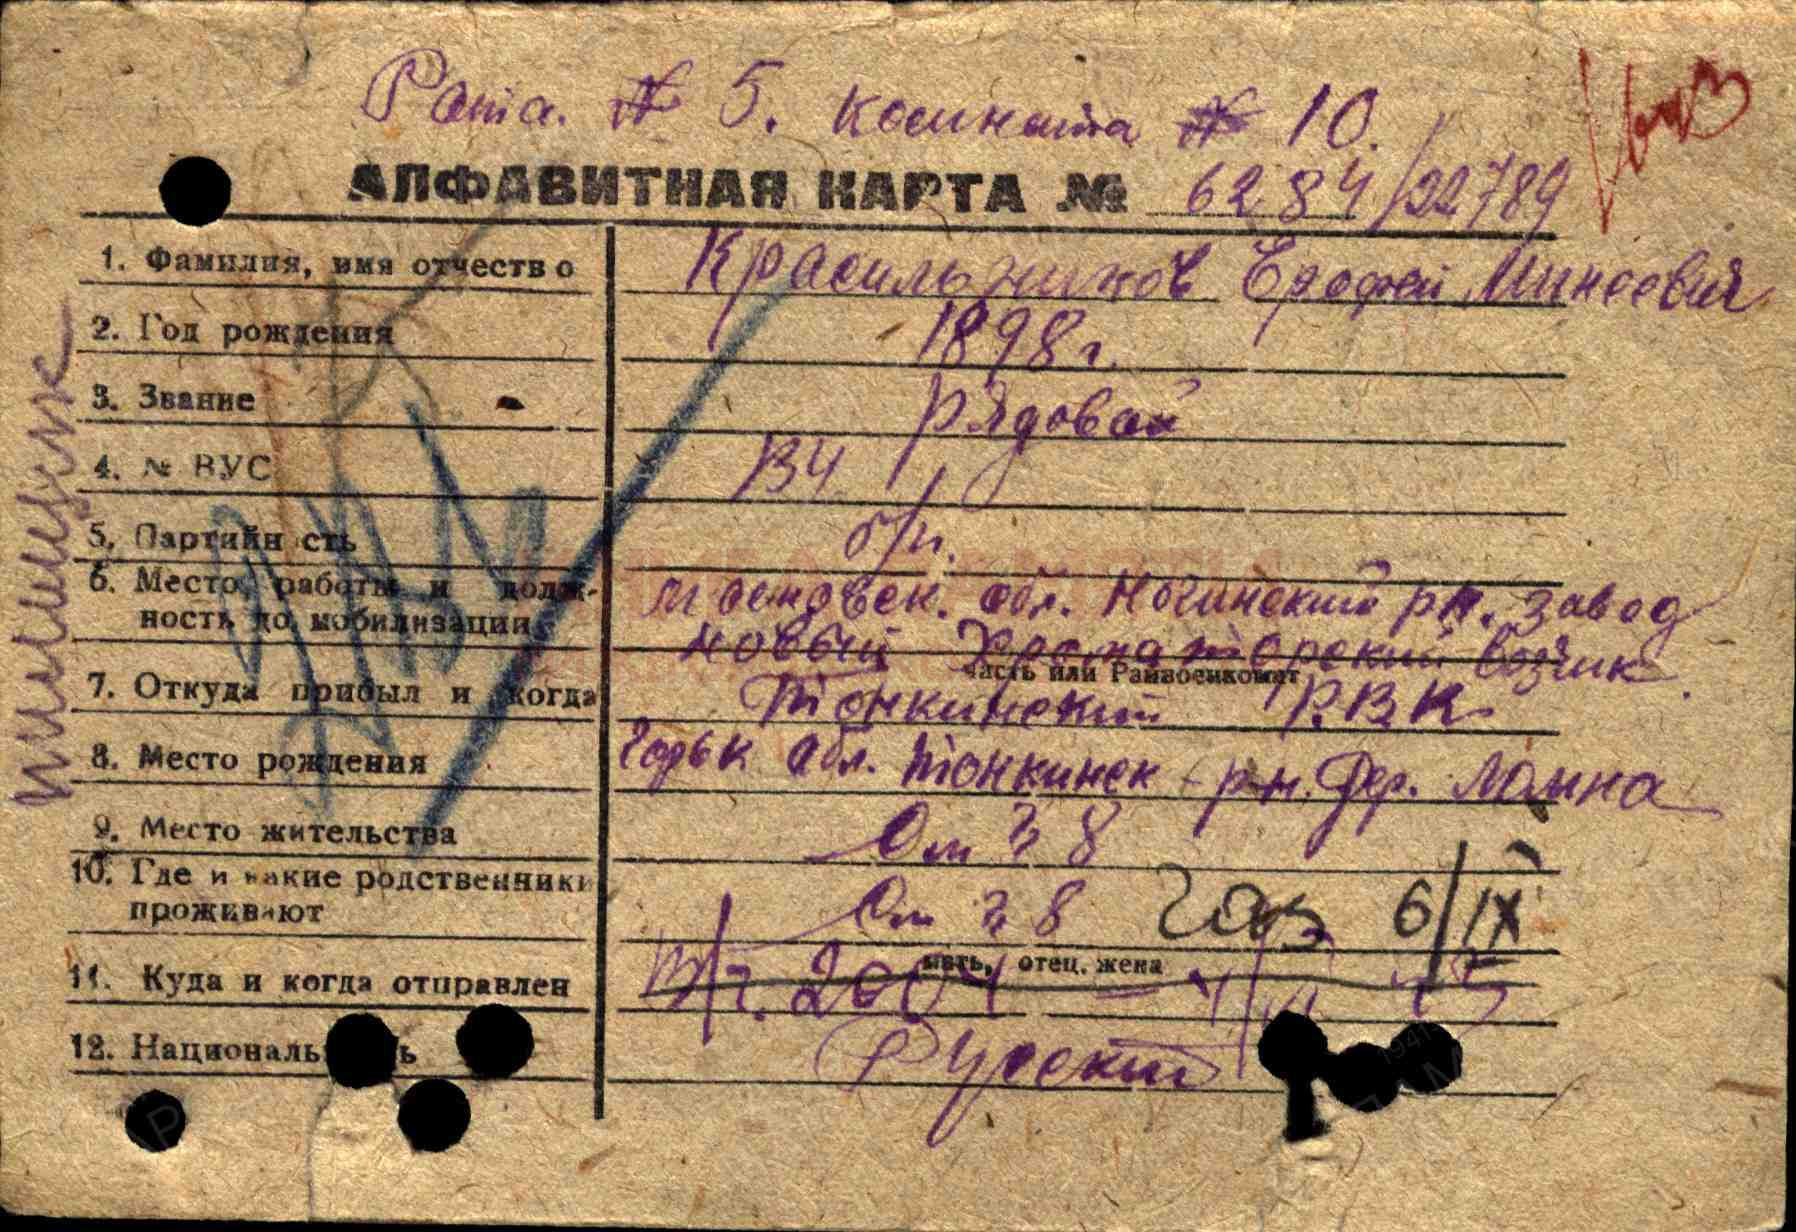 Рота № 5. комната № 10.
АЛФАВИТНАЯ КАРТА № 6284/22789
1. Фамилия, имя отчество Красильников Ерофей Минеевич
2. Год рождения 1898 г.
3. Звание Рядовой
4. № ВУС 134
5. Партийн сть б/п.
6. Место работы и долж- Московск. обл. Ногинский р-н. завод
ность до мобилизации Новый возчик
часть или Райвоенкомат
7. Откуда прибыл и когда Тонкинский Р.В.К
8. Место рождения Горьк обл. Тонкинск р-н. дер. Ломна
9. Место жительства См 3, 8
10. Где и какие родственники См 3, 8 6/IX
проживают
мать, отец, жена
11. Куда и когда отправлен В/ч. 2004
12. Националь ь Русский